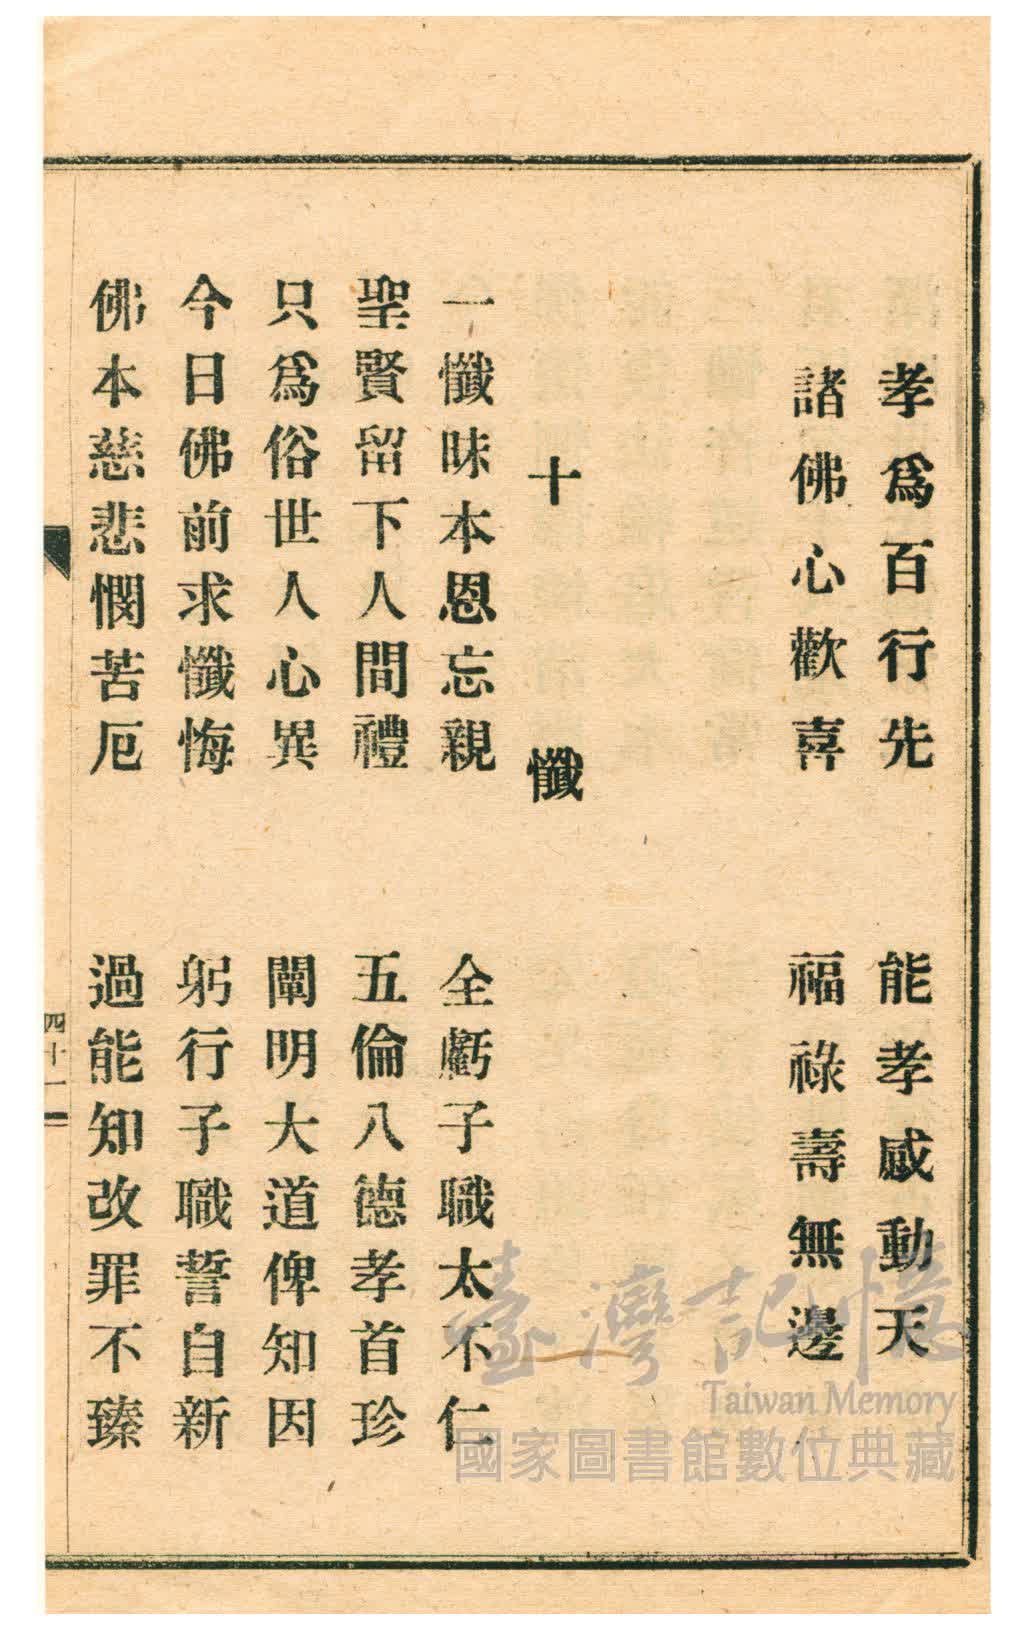 孝爲百行先　能孝感動天
諸佛心歡喜　福祿壽無邊
十懺
一懺昧本恩忘親　全虧子職太不仁
聖賢留下人間禮　五倫八德孝首珍
只爲俗世人心異　闡明大道俾知因
今日佛前求懺悔　躬行子職誓自新
佛本慈悲憫苦厄　過能知改罪不臻
四十一
臺灣記憶
Taiwan Memory
國家圖書館數位典藏